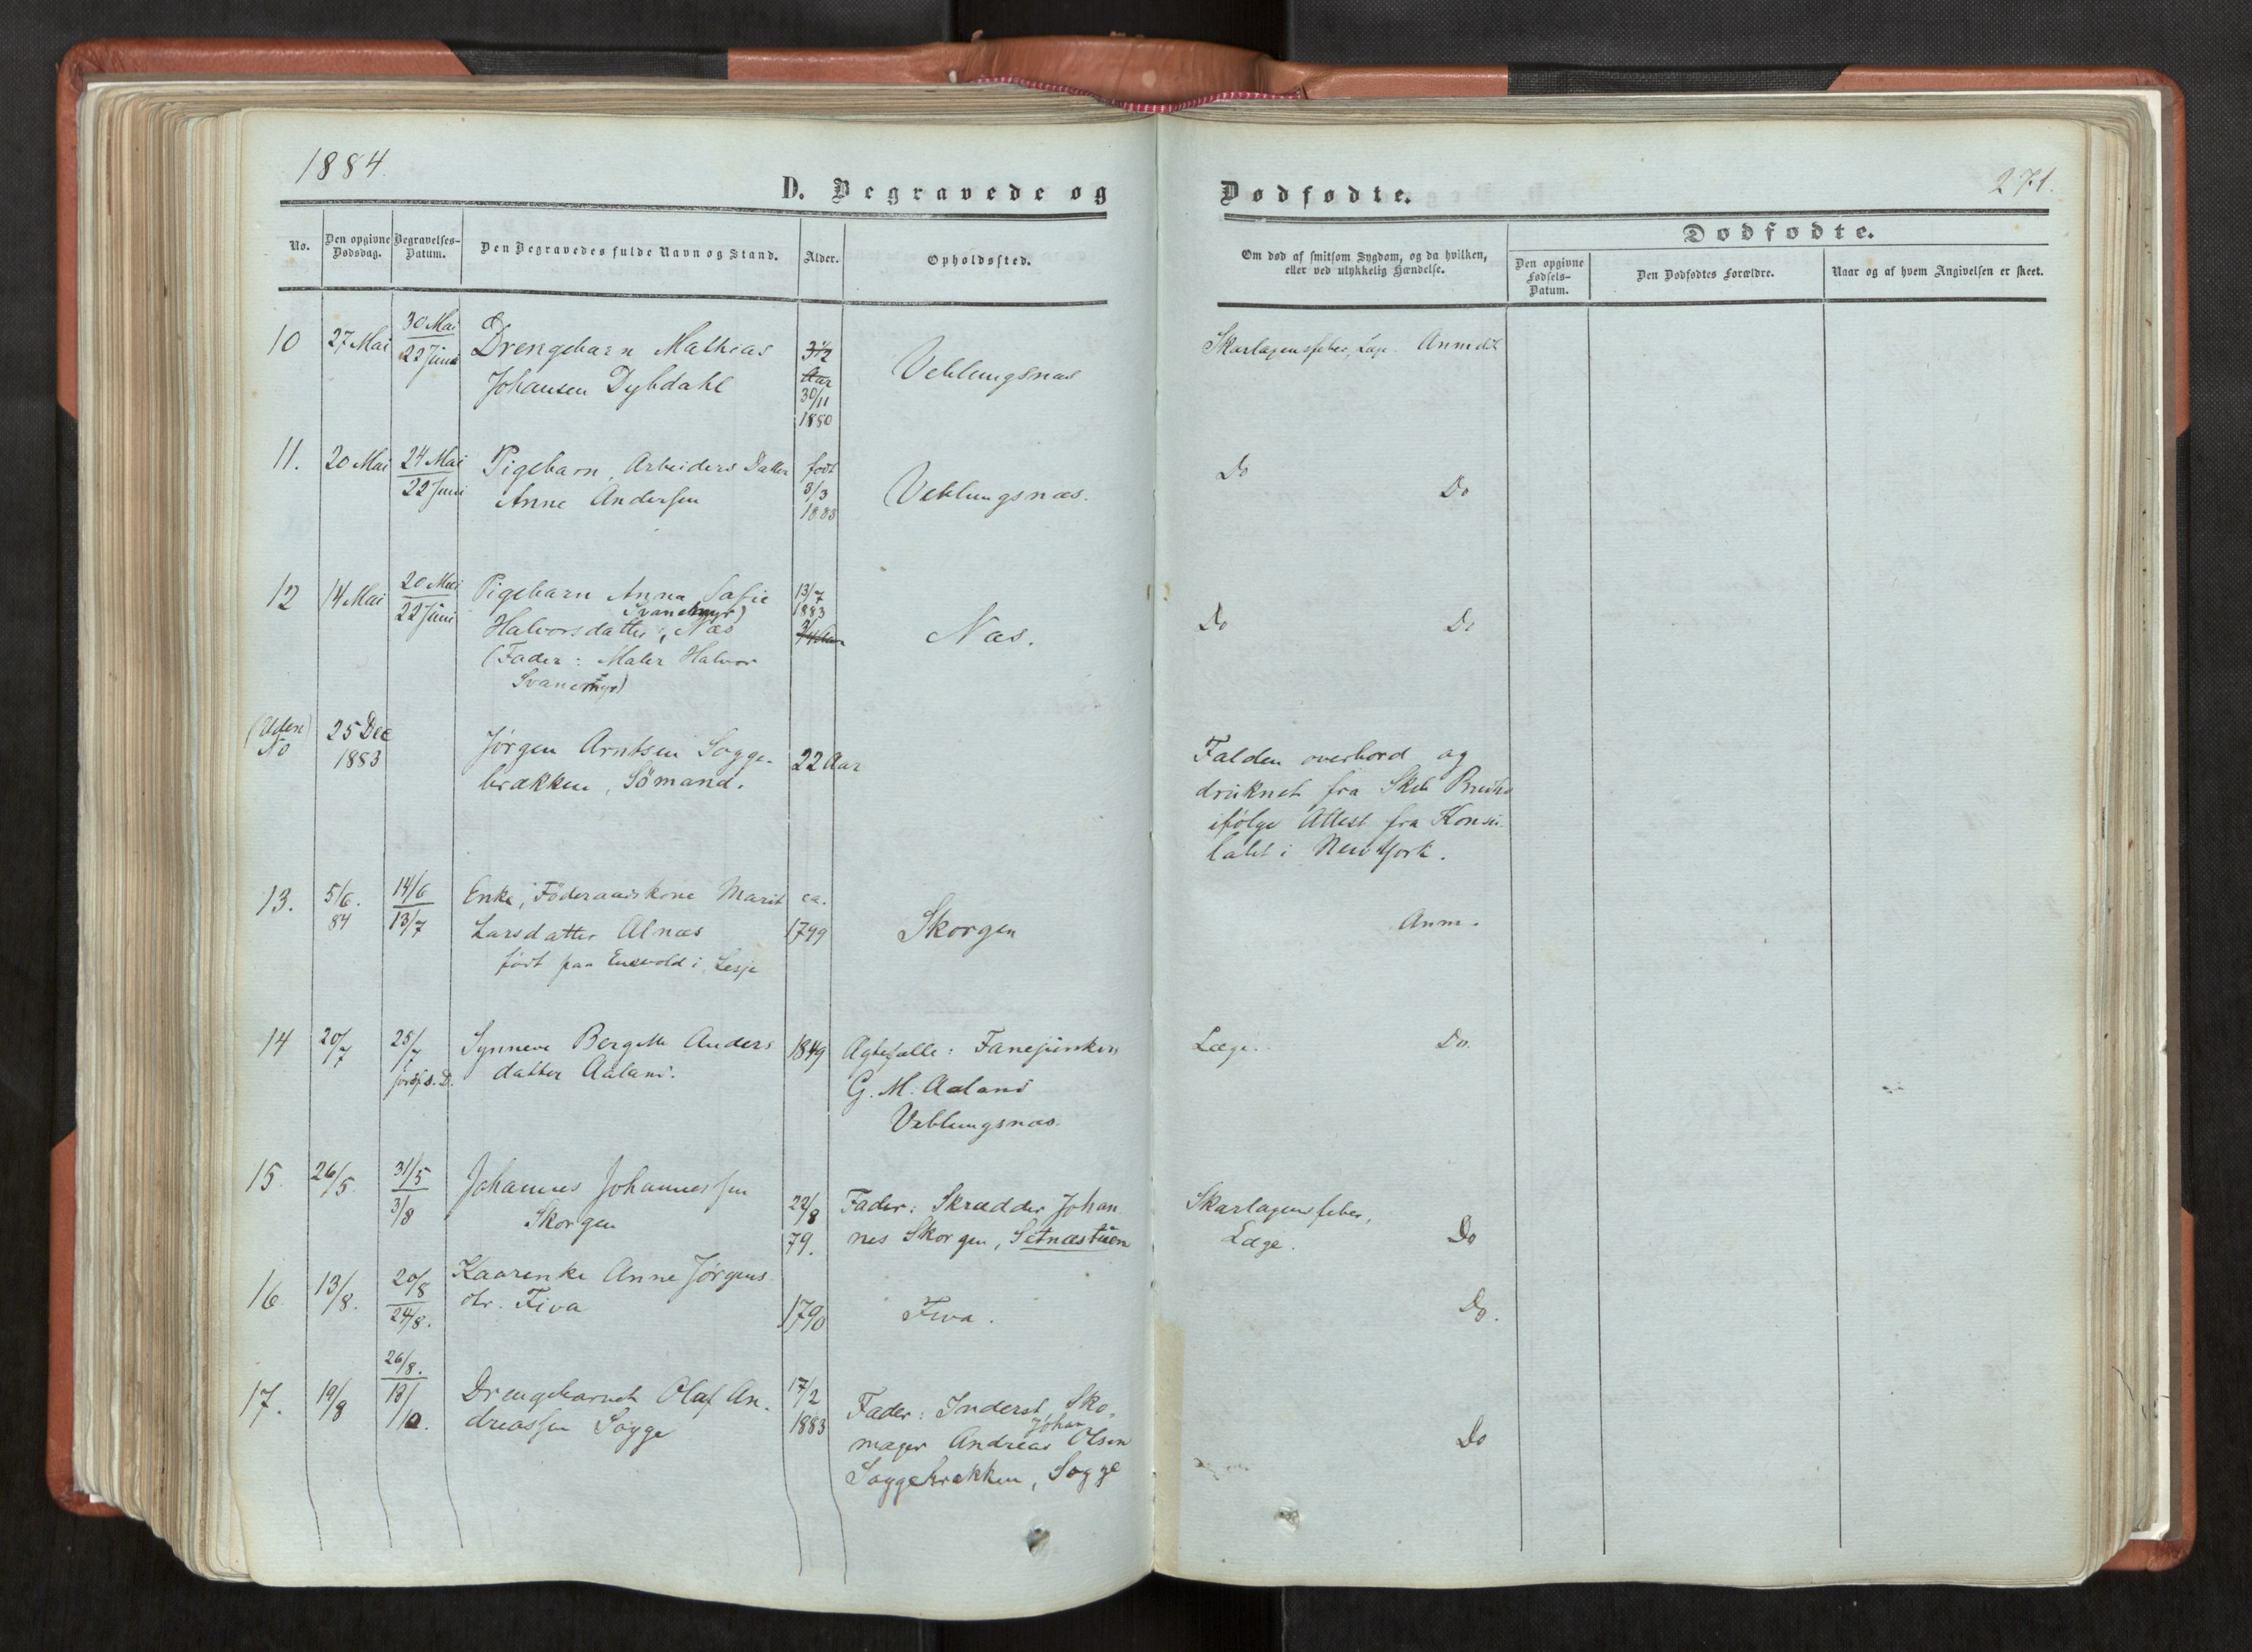 1884.
D. Begravede og
No.
Den opgivne Dødsdag.
Begravelses-Datum.
Den Begravedes fulde Navn og Stand.
Alder.
Opholdssted.
10
27 Mai
30 Mai
22 Juni
Drengebarn Mathias
Johansen Dybdahl
3½
Aar
30/11
1880
Veblungsnæs
11.
20 Mai
24 Mai
22 Juni
Pigebarn, Arbeiders Datter
Anne Andersen
født
3/3
1883
Veblungsnæs.
12
14 Mai
20 Mai
22 Juni
Pigebarn Anna Sofie
Svanemyr)
Halvorsdatter, Næs
(Fader: Maler Halvor
Svanemyr)
13/7
1883
3/4 Aar
Næs.
(Uden)
No
25 Dec
1883
Jørgen Arntsen Sogge-
brækken, Sömand.
22 Aar
13.
5/6.
84
14/6
13/7
Enke, Föderaadskone Marit
Larsdatter Alnæs
født paa Enevold i Lesje
ca.
1799
Skorgen
14
20/7
25/7
jordf. s. D.
Synneve Bergitte Anders
datter Aaland.
1849
Agtefælle: Fanejunker
G. M. Aaland
Veblungsnæs.
15.
26/5.
31/5
3/8
Johannes Johannessen
Skorgen
22/8
79.
Fader: Skrædder Johan
nes Skorgen, Setnæstuen
16.
13/8.
20/8
24/8.
Kaarenke Anne Jörgens
dtr. Fiva
1790
Fiva.
17.
19/8
26/8.
18/10.
Drengebarnet Olaf An-
dreassen Sogge
17/2
1883
Fader: Inderst, Sko-
Johan
mager Andreas Olsen
Soggebrækken, Sogge
Dødfødte.
271.
Om død af smitsom Sygdom, og da hvilken,
eller ved ulykkelig Hændelse.
Dødfødte.
Den opgivne Fødsels-Datum.
Den Dødfødtes Forældre.
Naar og af hvem Angivelsen er skeet.
Skarlagensfeber, Læge. Anmdt
Do
Do
Do
Do
Falden overbord og
druknet fra Skib
ifölge Attest fra Konsu-
latet i New York.
Anm.
Læge.
Do.
Skarlagensfeber,
Læge.
Do
Do.
Do